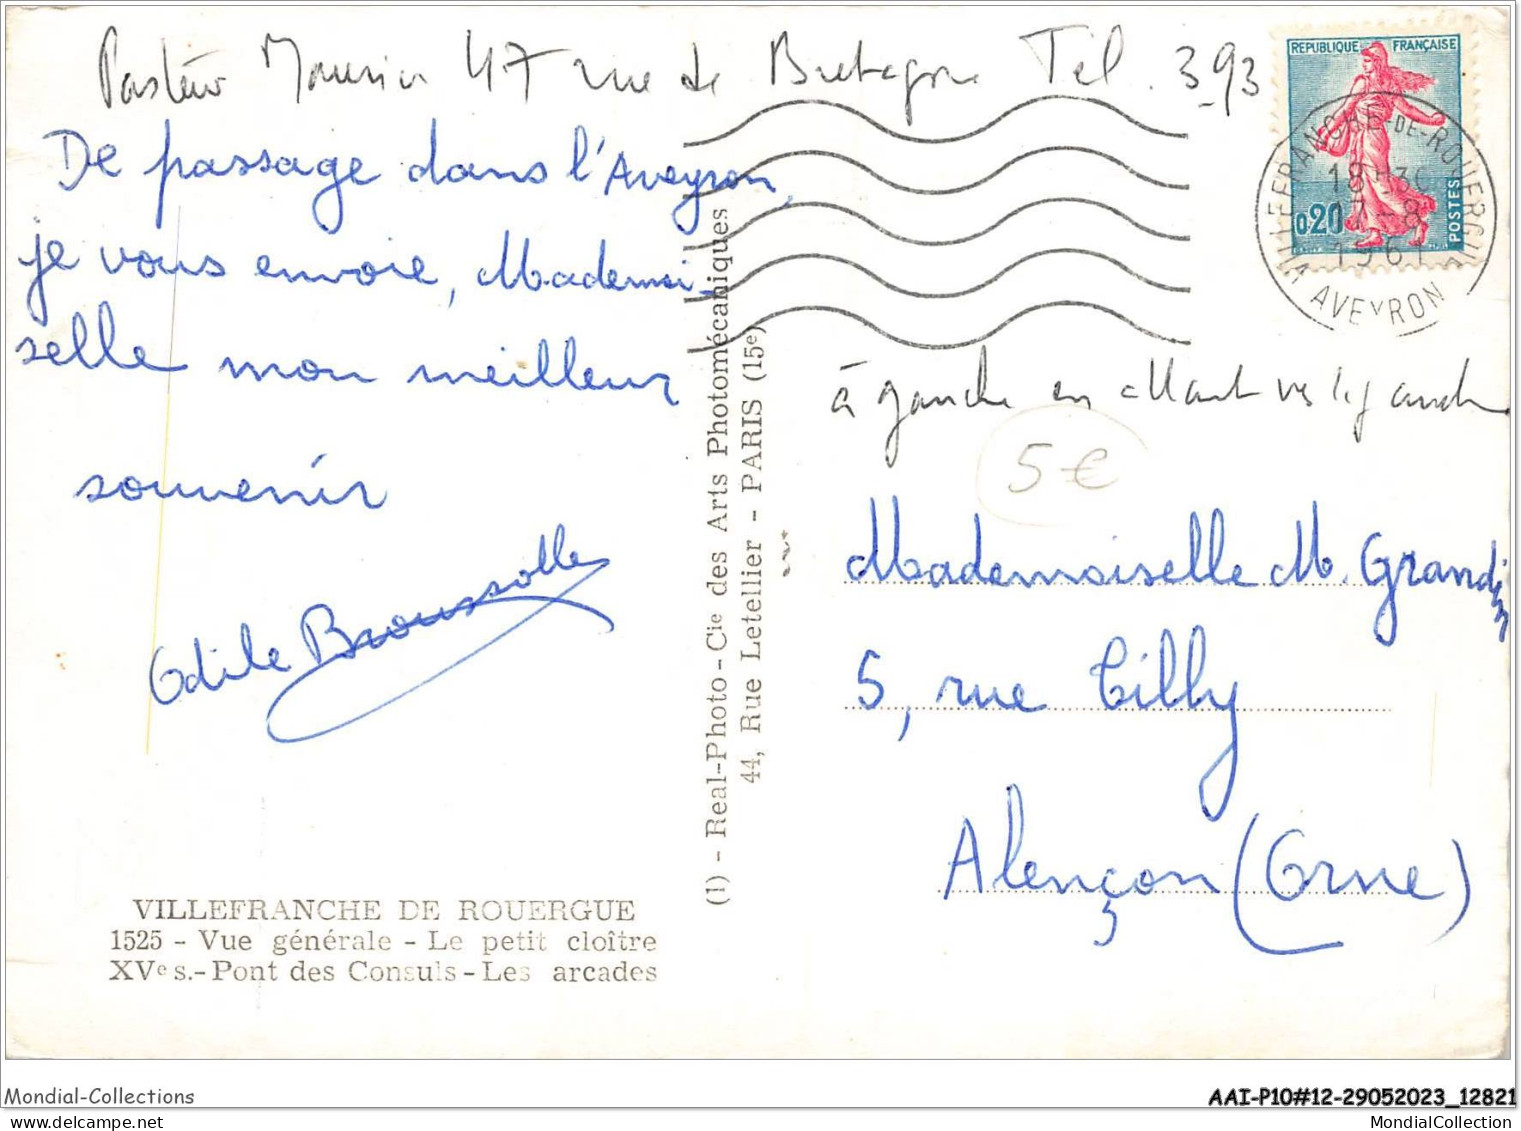 Pasteur 47 rue de Bretagne Tél. 393
De passage dans l'Aveyron,
je vous envoie, Mademoi-
selle mon meilleur
souvenir
Odile Broussolle
VILLEFRANCHE DE ROUERGUE
1525 - Vue générale - Le petit cloître
XVe s.-Pont des Consuls-Les arcades
(1) - Real-Photo-Cie des Arts Photomécaniques
44, Rue Letellier - PARIS (15e)
REPUBLIQUE FRANÇAISE
0,20
POSTES
VILLEFRANCHE-DE-ROUERGUE
18H30
17-8
1961
AVEYRON
à gauche en
5€
Mademoiselle M. Grandin
5, rue Tilly
Alençon (Orne)
Mondial-Collections
AAI-P10#12-29052023_12821
MondialCollection